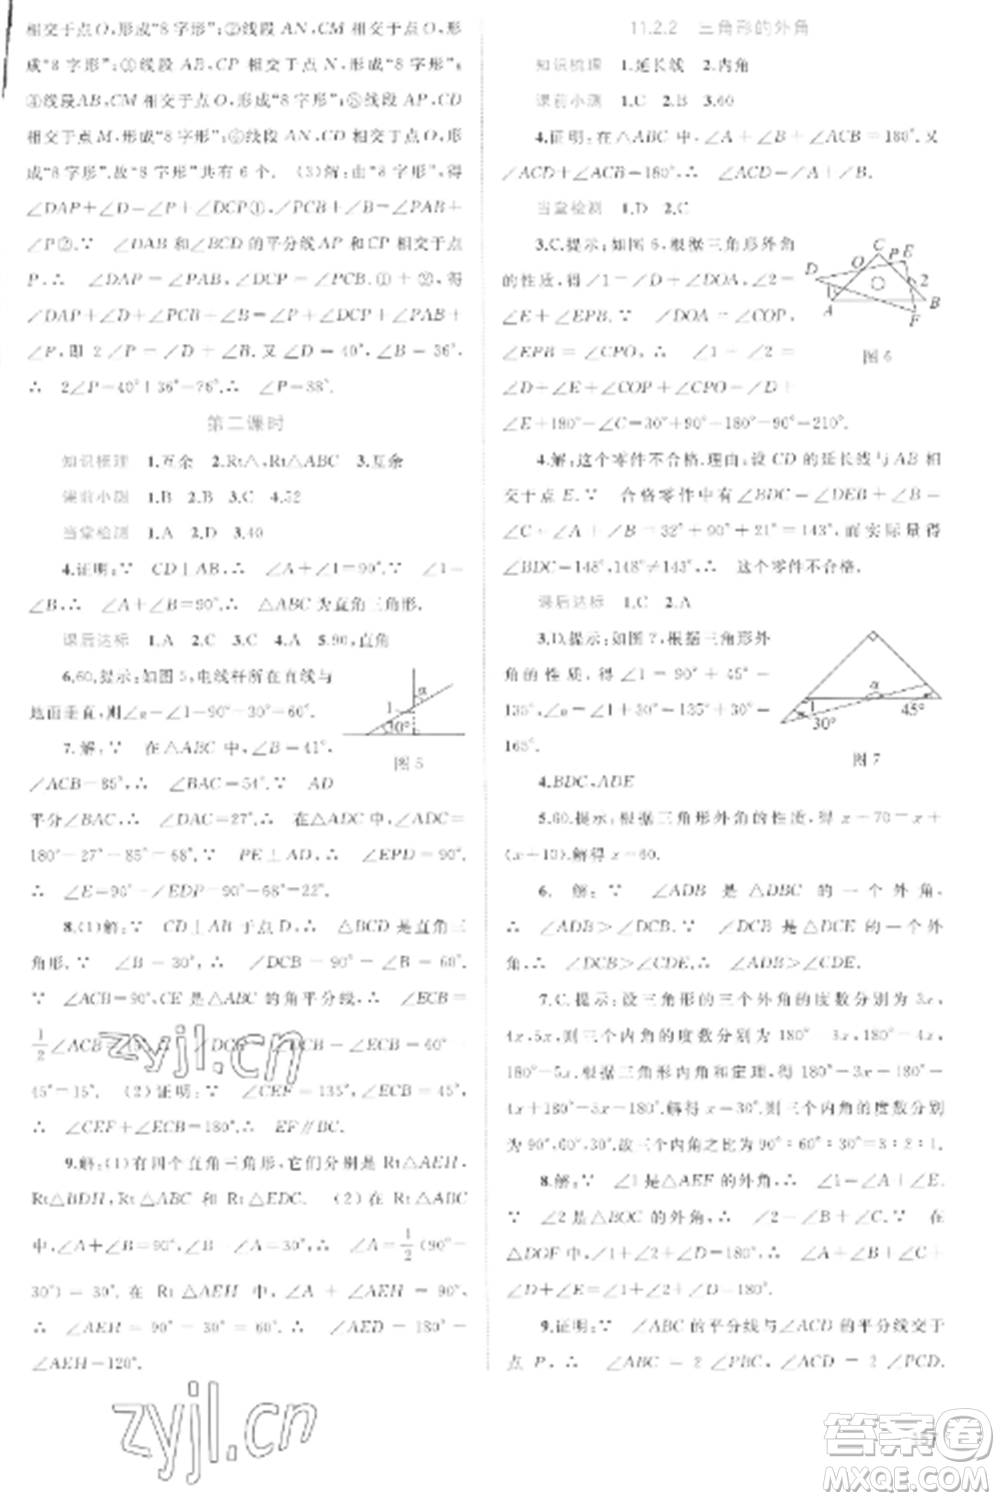 相交于点O,形成“8字形”;②线段AN,CM相交于点O,形
成“8字形”;③线段AB,CP相交于点N,形成“8字形”;
④线段AB,CM相交于点O,形成“8字形”;⑤线段AP,CD
相交于点M,形成“8字形”;⑥线段AN,CD相交于点O,形
成“8字形”.故“8字形”共有6个. (3)解:由“8字形”,得
∠DAP+∠D=∠P+∠DCP①,∠PCB+∠B=∠PAB+
∠P②.∵ ∠DAB和∠BCD的平分线AP和CP相交于
点P,∴ ∠DAP=∠PAB,∠DCP=∠PCB.①+②,得
∠DAP+∠D+∠PCB+∠B=∠P+∠DCP+∠PAB+
∠P,即2∠P=∠D+∠B.又∵ ∠D=40°,∠B=36°,
∴ 2∠P=40°+36°=76°.∴ ∠P=38°.
第二课时
知识梳理 1.互余 2.Rt△,Rt△ABC 3.互余
课前小测 1.B 2.B 3.C 4.52
当堂检测 1.A 2.D 3.40
4.证明:∵ CD⊥AB,∴ ∠A+∠1=90°.∵ ∠1=
∠B,∴ ∠A+∠B=90°,∴ △ABC为直角三角形.
课后达标 1.A 2.C 3.C 4.A 5.90,直角
6.60.提示:如图5,电线杆所在直线与
地面垂直,则∠α=∠1=90°-30°=60°.
1 α 30°
图5
7.解:∵ 在△ABC中,∠B=41°,
∠ACB=85°,∴ ∠BAC=54°.∵ AD
平分∠BAC,∴ ∠DAC=27°.∴ 在△ADC中,∠ADC=
180°-27°-85°=68°.∵ PE⊥AD,∴ ∠EPD=90°.
∴ ∠E=90°-∠EDP=90°-68°=22°.
8.(1)解:∵ CD⊥AB于点D,∴ △BCD为直角三
角形.∵ ∠B=30°,∴ ∠DCB=90°-30°=60°.
∵ ∠ACB=90°,CE是△ABC的角平分线,∴ ∠ECB=
1/2∠ACB=45°.∴ ∠DCE=∠DCB-∠ECB=60°-
45°=15°. (2)证明:∵ ∠CEF=135°,∠ECB=45°,
∴ ∠CEF+∠ECB=180°,∴ EF∥BC.
9.解:(1)有四个直角三角形,它们分别是Rt△AEH,
Rt△BDH,Rt△ABC和Rt△EDC. (2)在Rt△ABC
中,∵ ∠A+∠C=90°,∠A-∠C=30°,∴ ∠A=1/2(90°-
30°)=30°.在Rt△AEH中,∵ ∠A+∠AEH=90°,
∴ ∠AEH=90°-30°=60°,∴ ∠AED=180°-
∠AEH=120°.
11.2.2 三角形的外角
知识梳理 1.延长线 2.内角
课前小测 1.C 2.B 3.60
4.证明:在△ABC中,∠A+∠B+∠ACB=180°.又
∠ACD+∠ACB=180°,∴ ∠ACD=∠A+∠B.
当堂检测 1.D 2.C
3.C.提示:如图6,根据三角形外角
的性质,得∠1=∠D+∠DOA,∠2=
∠E+∠EPB.∵ ∠DOA=∠COP,
∠EPB=∠CPO,∴ ∠1+∠2=
∠D+∠E+∠COP+∠CPO=∠D+
∠E+180°-∠C=30°+90°+180°-90°=210°.
C P E D O 1 2 A B F
图6
4.解:这个零件不合格.理由:设CD的延长线与AB相
交于点E.∵ 合格零件中有∠BDC=∠DEB+∠B=
∠C+∠A+∠B=32°+90°+21°=143°,而实际量得
∠BDC=148°,148°≠143°,∴ 这个零件不合格.
课后达标 1.C 2.A
3.D.提示:如图7,根据三角形外
角的性质,得∠1=90°+45°=
135°,∠α=∠1+30°=135°+30°=
165°.
1 α 30° 45°
图7
4.BDC,ADE
5.60.提示:根据三角形外角的性质,可得x+70=x+
(x+10).解得x=60.
6. 解:∵ ∠ADB是△DBC的一个外角,
∴ ∠ADB>∠DCB.∵ ∠DCB是△DCE的一个外
角,∴ ∠DCB>∠CDE,∴ ∠ADB>∠CDE.
7.C.提示:设三角形的三个外角的度数分别为3x,
4x,5x,则三个内角的度数分别为180°-3x,180°-4x,
180°-5x.根据三角形内角和定理,得180°-3x+180°-
4x+180°-5x=180°.解得x=30°.所以三个内角的度数分别
为90°,60°,30°.故三个内角之比为90°:60°:30°=3:2:1.
8.解:∵ ∠1是△AEF的外角,∴ ∠1=∠A+∠E.
∵ ∠2是△BOC的外角,∴ ∠2=∠B+∠C.∵ 在
△DOF中,∠1+∠2+∠D=180°,∴ ∠A+∠B+∠C+
∠D+∠E=∠1+∠2+∠D=180°.
9.证明:∵ ∠ABC的平分线与∠ACD的平分线交于
点P,∴ ∠ABC=2∠PBC,∠ACD=2∠PCD.
zyjl.cn
zyjl.cn
答案卷
MXQE.COM